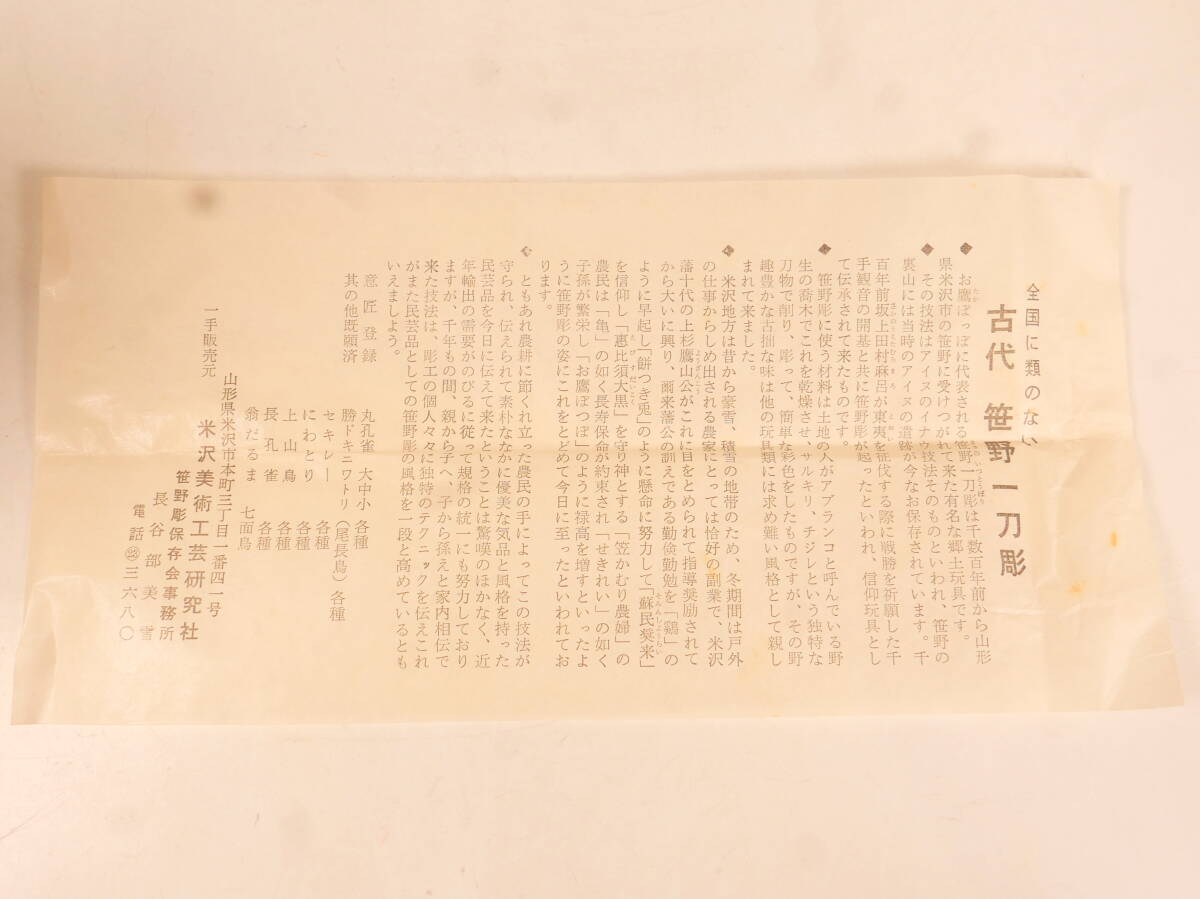 全国に類のない
古代 笹野一刀彫
◆ お鷹ぽっぽに代表される笹野一刀彫は千数百年前から山形
県米沢市の笹野に受けつがれて来た有名な郷土玩具です。
◆ その技法はアイヌのイナウ技法そのものといわれ、笹野の
裏山には当時のアイヌの遺跡が今なお保存されています。千
百年前坂上田村麻呂が東夷を征伐する際に戦勝を祈願した千
手観音の開基と共に笹野彫が起ったといわれ、信仰玩具とし
て伝承されて来たものです。
◆ 笹野彫に使う材料は土地の人がアブランコと呼んでいる野
生の喬木でこれを乾燥させ、サルキリ、チジレという独特な
刃物で削り、彫って、簡単な彩色をしたものですが、その野
趣豊かな古拙な味は他の玩具類には求め難い風格として親し
まれて来ました。
◆ 米沢地方は昔から豪雪、積雪の地帯のため、冬期間は戸外
の仕事からしめ出される農家にとっては恰好の副業で、米沢
藩十代の上杉鷹山公がこれに目をとめられて指導奨励されて
から大いに興り、爾来藩公の訓えである勤倹勤勉を「鶏」の
ように早起し「餅つき兎」のように懸命に努力して「蘇民奨来」
を信仰し「恵比須大黒」を守り神とする「笠かむり農婦」の
農民は「亀」の如く長寿保命が約束され「せきれい」の如く
子孫が繁栄し「お鷹ぽつぽ」のように禄高を増すといったよ
うに笹野彫の姿にこれをとどめて今日に至ったといわれてお
ります。
◆ ともあれ農耕に節くれ立った農民の手によってこの技法が
守られ、伝えられて素朴ななかに優美な気品と風格を持った
民芸品を今日に伝えて来たということは驚嘆のほかなく、近
年輸出の需要がのびるに従って規格の統一にも努力しており
ますが、千年もの間、親から子へ、子から孫えと家内相伝で
来た技法は、彫工の個人々々に独特のテクニックを伝えこれ
がまた民芸品としての笹野彫の風格を一段と高めているとも
いえましよう。
意匠登録 丸孔雀 大中小 各種
其の他既願済 勝ドキニワトリ (尾長鳥) 各種
セキレー 各種
にわとり 各種
上山鳥 各種
長孔雀 各種
翁だるま 七面鳥
山形県米沢市本町三丁目一番四一号
一手販売元 米沢美術工芸研究社
笹野彫保存会事務所
長谷部美雪
電話㉓三六八〇